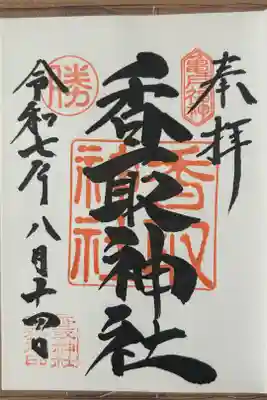 奉拝
亀戸香神
香取神社
香取神社
勝
令和七年八月十四日